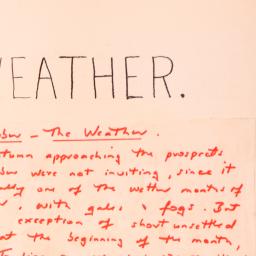 WEATHER.
— The Weather.
approaching the prospects
were not inviting, since it
one of the wetter months of
with gales & fogs. But
exception of short unsettled
at the beginning of the month,